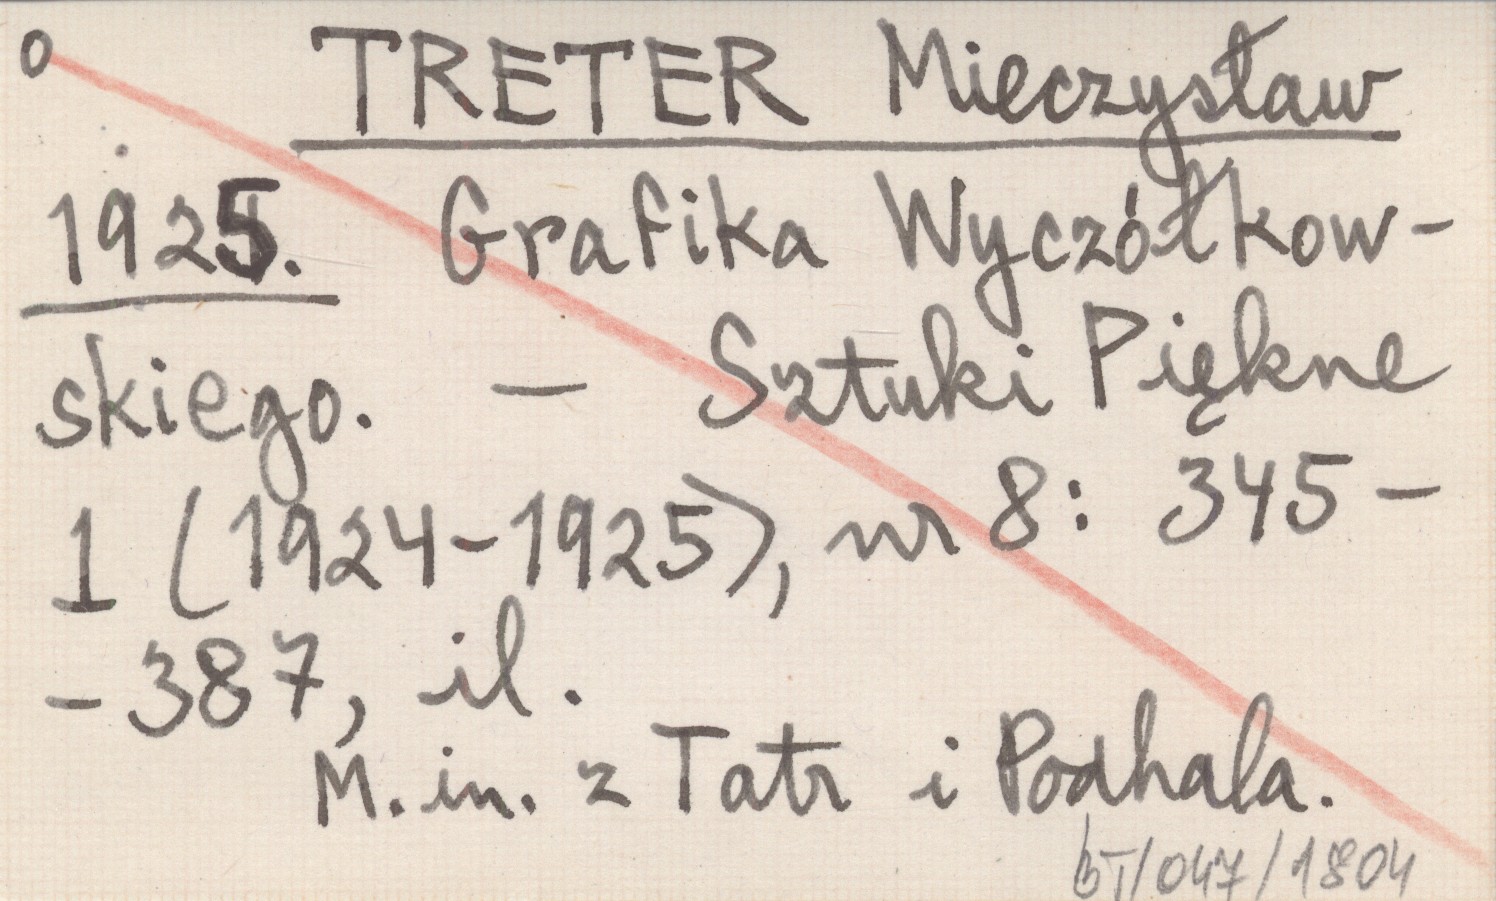 o TRETER Mieczysław
1925. Grafika Wyczółkow-
skiego. — Sztuki Piękne
1 (1924-1925), nr 8: 345-
-387, il.
M. in. z Tatr i Podhala.
bT/047/1804